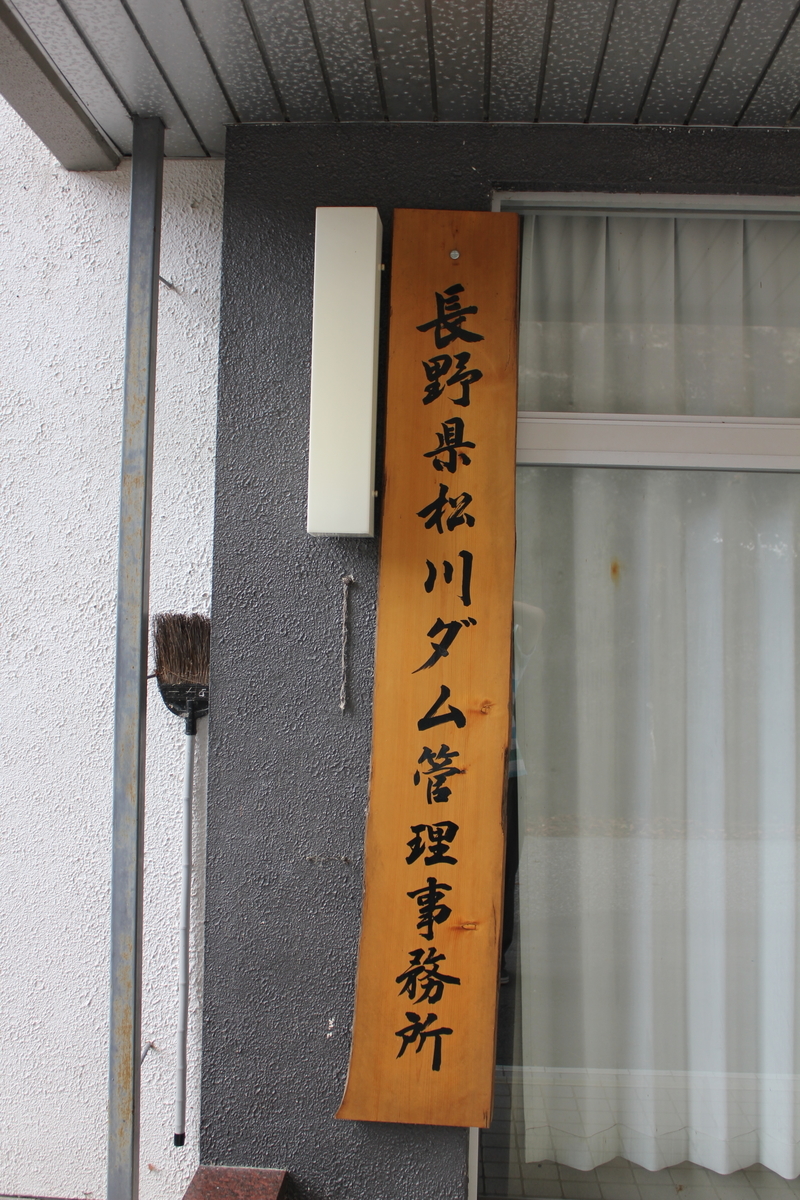 長野県松川ダム管理事務所